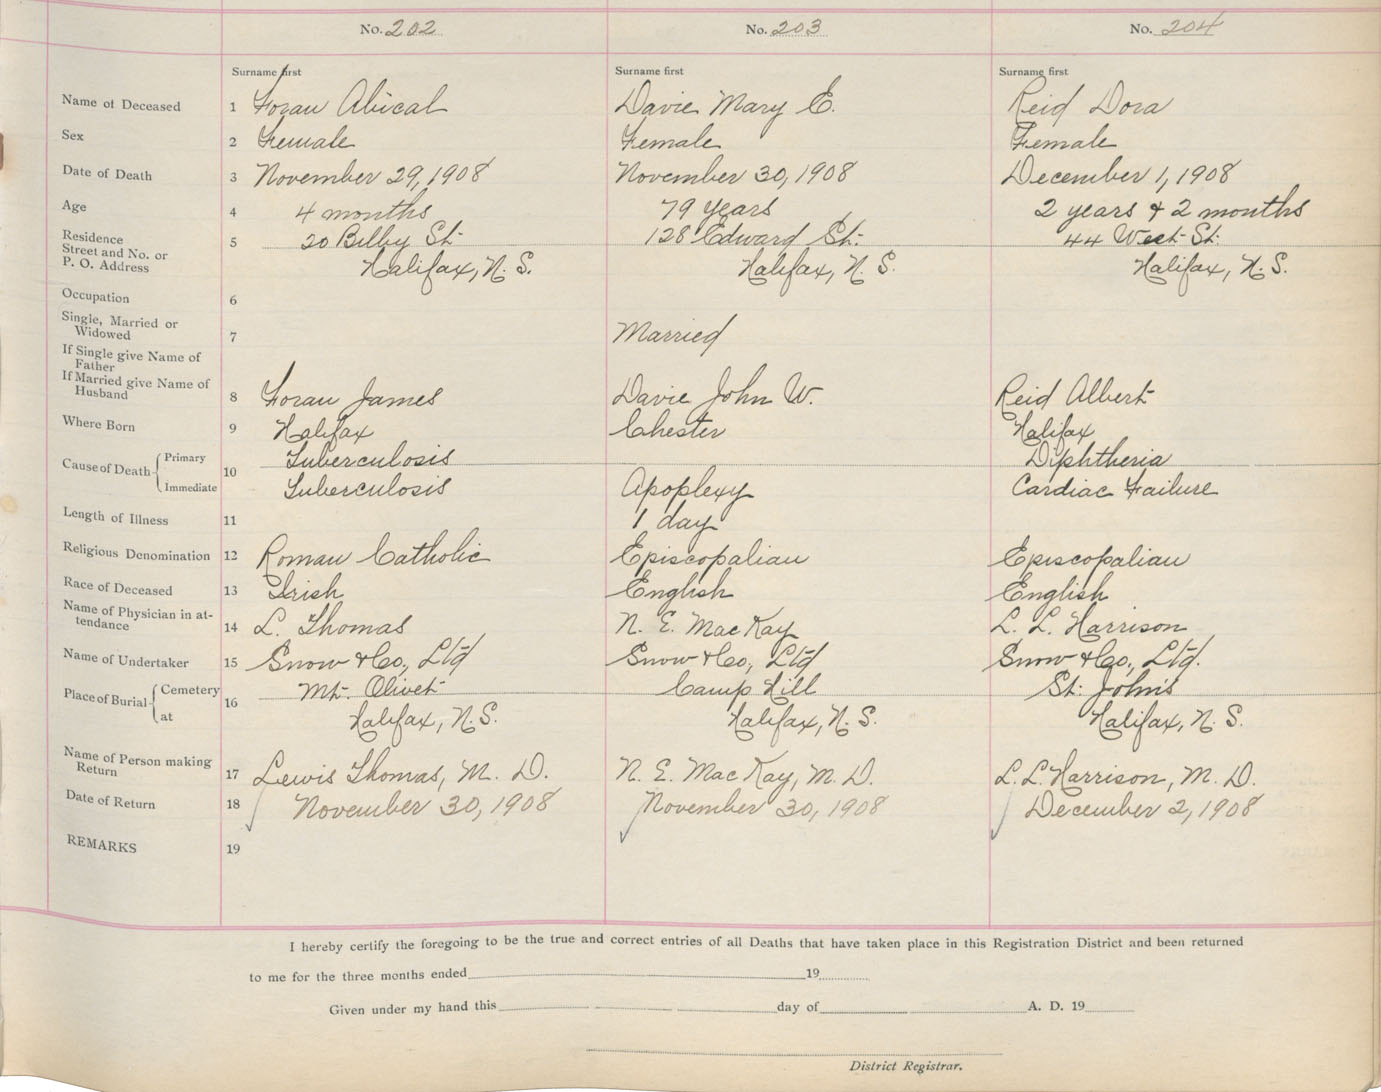 No. 202 No. 203 No. 204
Surname first Surname first Surname first
Name of Deceased 1 Foran Abical Davie Mary E. Reid Dora
Sex 2 Female Female Female
Date of Death 3 November 29, 1908 November 30, 1908 December 1, 1908
Age 4 4 months 79 years 2 years & 2 months
Residence
Street and No. or 5 20 Bilby St. 128 Edward St. 44 West St.
P. O. Address Halifax, N. S. Halifax, N. S. Halifax, N. S.
Occupation 6
Single, Married or
Widowed 7 Married
If Single give Name of
Father
If Married give Name of
Husband 8 Foran James Davie John W. Reid Albert
Where Born 9 Halifax Chester Halifax
Cause of Death Primary 10 Tuberculosis Diphtheria
Immediate Tuberculosis Apoplexy Cardiac Failure
Length of Illness 11 1 day
Religious Denomination 12 Roman Catholic Episcopalian Episcopalian
Race of Deceased 13 Irish English English
Name of Physician in at-
tendance 14 L. Thomas N. E. MacKay L. L. Harrison
Name of Undertaker 15 Snow & Co., Ltd Snow & Co, Ltd Snow & Co., Ltd.
Place of Burial Cemetery 16 Mt. Olivet Camp Hill St. John's
at Halifax, N. S. Halifax, N. S. Halifax, N. S.
Name of Person making
Return 17 Lewis Thomas, M. D. N. E. MacKay, M. D. L. L. Harrison, M. D.
Date of Return 18 November 30, 1908 November 30, 1908 December 2, 1908
REMARKS 19
I hereby certify the foregoing to be the true and correct entries of all Deaths that have taken place in this Registration District and been returned
to me for the three months ended 19
Given under my hand this day of A. D. 19
District Registrar.